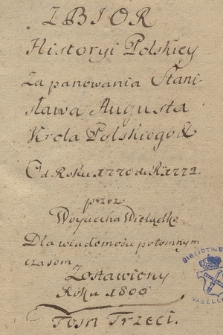 ZBIOR
Historyi Polskiey
Za panowania Stani-
sława Augusta
Krola Polskiego &
Od Roku 1770 do R. 1772.
przez
Woyciecha Wielądko
Dla wiadomości potomnym
czasom
Zostawiony
Roku 1800
Tom Trzeci.